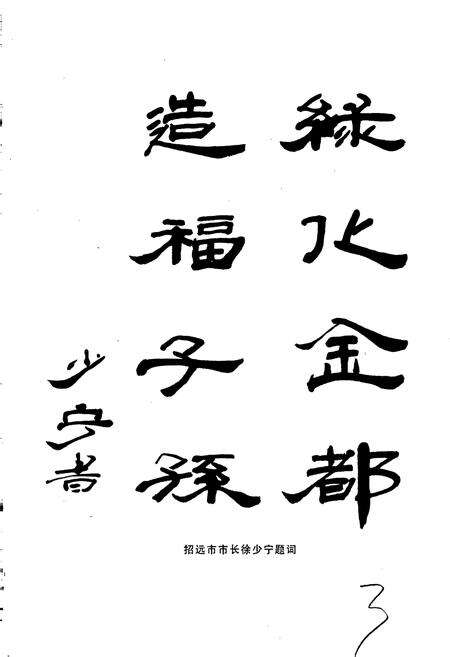 綠化金都
造福子孫
少宁書
招远市市长徐少宁题词
3